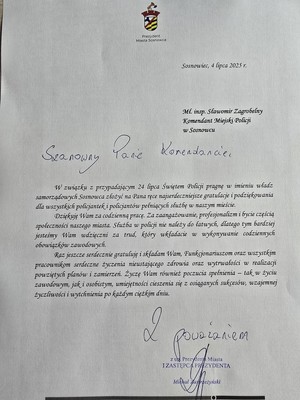 Prezydent
Miasta Sosnowca
Sosnowiec, 4 lipca 2025 r.
Mł. insp. Sławomir Zagrobelny
Komendant Miejski Policji
w Sosnowcu
Szanowny Panie Komendancie,
W związku z przypadającym 24 lipca Świętem Policji pragnę w imieniu władz
samorządowych Sosnowca złożyć na Pana ręce najserdeczniejsze gratulacje i podziękowania
dla wszystkich policjantek i policjantów pełniących służbę w naszym mieście.
Dziękuję Wam za codzienną pracę. Za zaangażowanie, profesjonalizm i bycie częścią
społeczności naszego miasta. Służba w policji nie należy do łatwych, dlatego tym bardziej
jesteśmy Wam wdzięczni za trud, który wkładacie w wykonywanie codziennych
obowiązków zawodowych.
Raz jeszcze serdecznie gratuluję i składam Wam, Funkcjonariuszom oraz wszystkim
pracownikom serdeczne życzenia nieustającego zdrowia oraz wytrwałości w realizacji
powziętych planów i zamierzeń. Życzę Wam również poczucia spełnienia – tak w życiu
zawodowym, jak i osobistym, umiejętności cieszenia się z osiąganych sukcesów, wzajemnej
życzliwości i wytchnienia po każdym ciężkim dniu.
Z poważaniem
z up. Prezydenta Miasta
I ZASTĘPCA PREZYDENTA